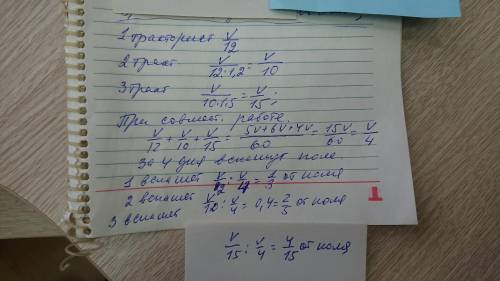 1 тракторист V/12
2 тракт V/(12:1,2) = V/10
3 тракт V/(10·1,5) = V/15;
При совмест. работе:
V/12 + V/10 + V/15 = (5V+6V+4V)/60 = 15V/60 = V/4
За 4 дня вспашут поле.
1 вспашет V/12 : V/4 = 1/3 от поля
2 вспашет V/10 : V/4 = 0,4 = 2/5 от поля
3 вспашет
V/15 : V/4 = 4/15 от поля